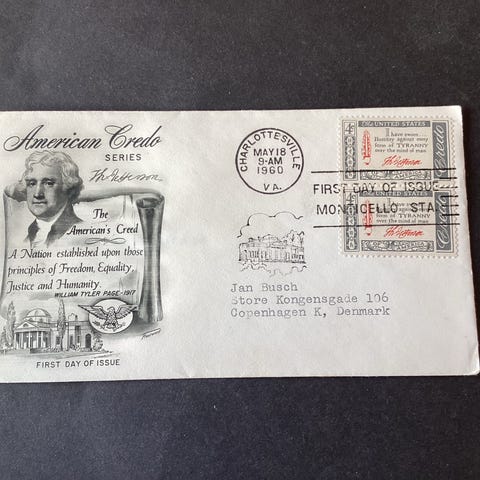 American Credo
SERIES
Th Jefferson
The
American's Creed
A Nation established upon those
principles of Freedom, Equality,
Justice and Humanity.
WILLIAM TYLER PAGE-1917
FIRST DAY OF ISSUE
CHARLOTTESVILLE
MAY 18
9-AM
1960
VA.
FIRST DAY OF ISSUE
MONTICELLO STA.
4¢
The UNITED STATES
I have sworn...
Hostility against every
form of TYRANNY
over the mind of man
Th Jefferson
Credo
I have sworn...
Hostility against every
form of TYRANNY
over the mind of man
Th Jefferson
Credo
Jan Busch
Store Kongensgade 106
Copenhagen K, Denmark